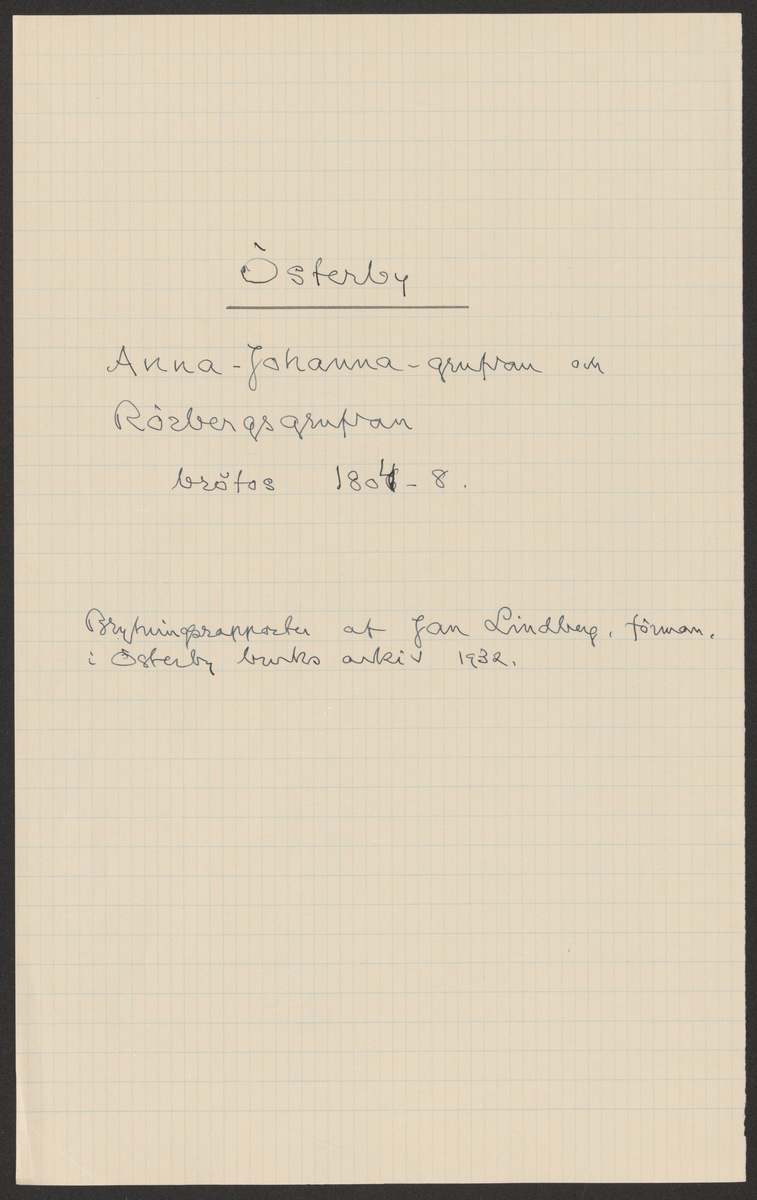 Österby
Anna-Johanna-grufvan och
Rörbergsgrufvan
brötos 1804-8.
Brytningsrapporter af Jan Lindberg, förman,
i Österby bruks arkiv 1932.